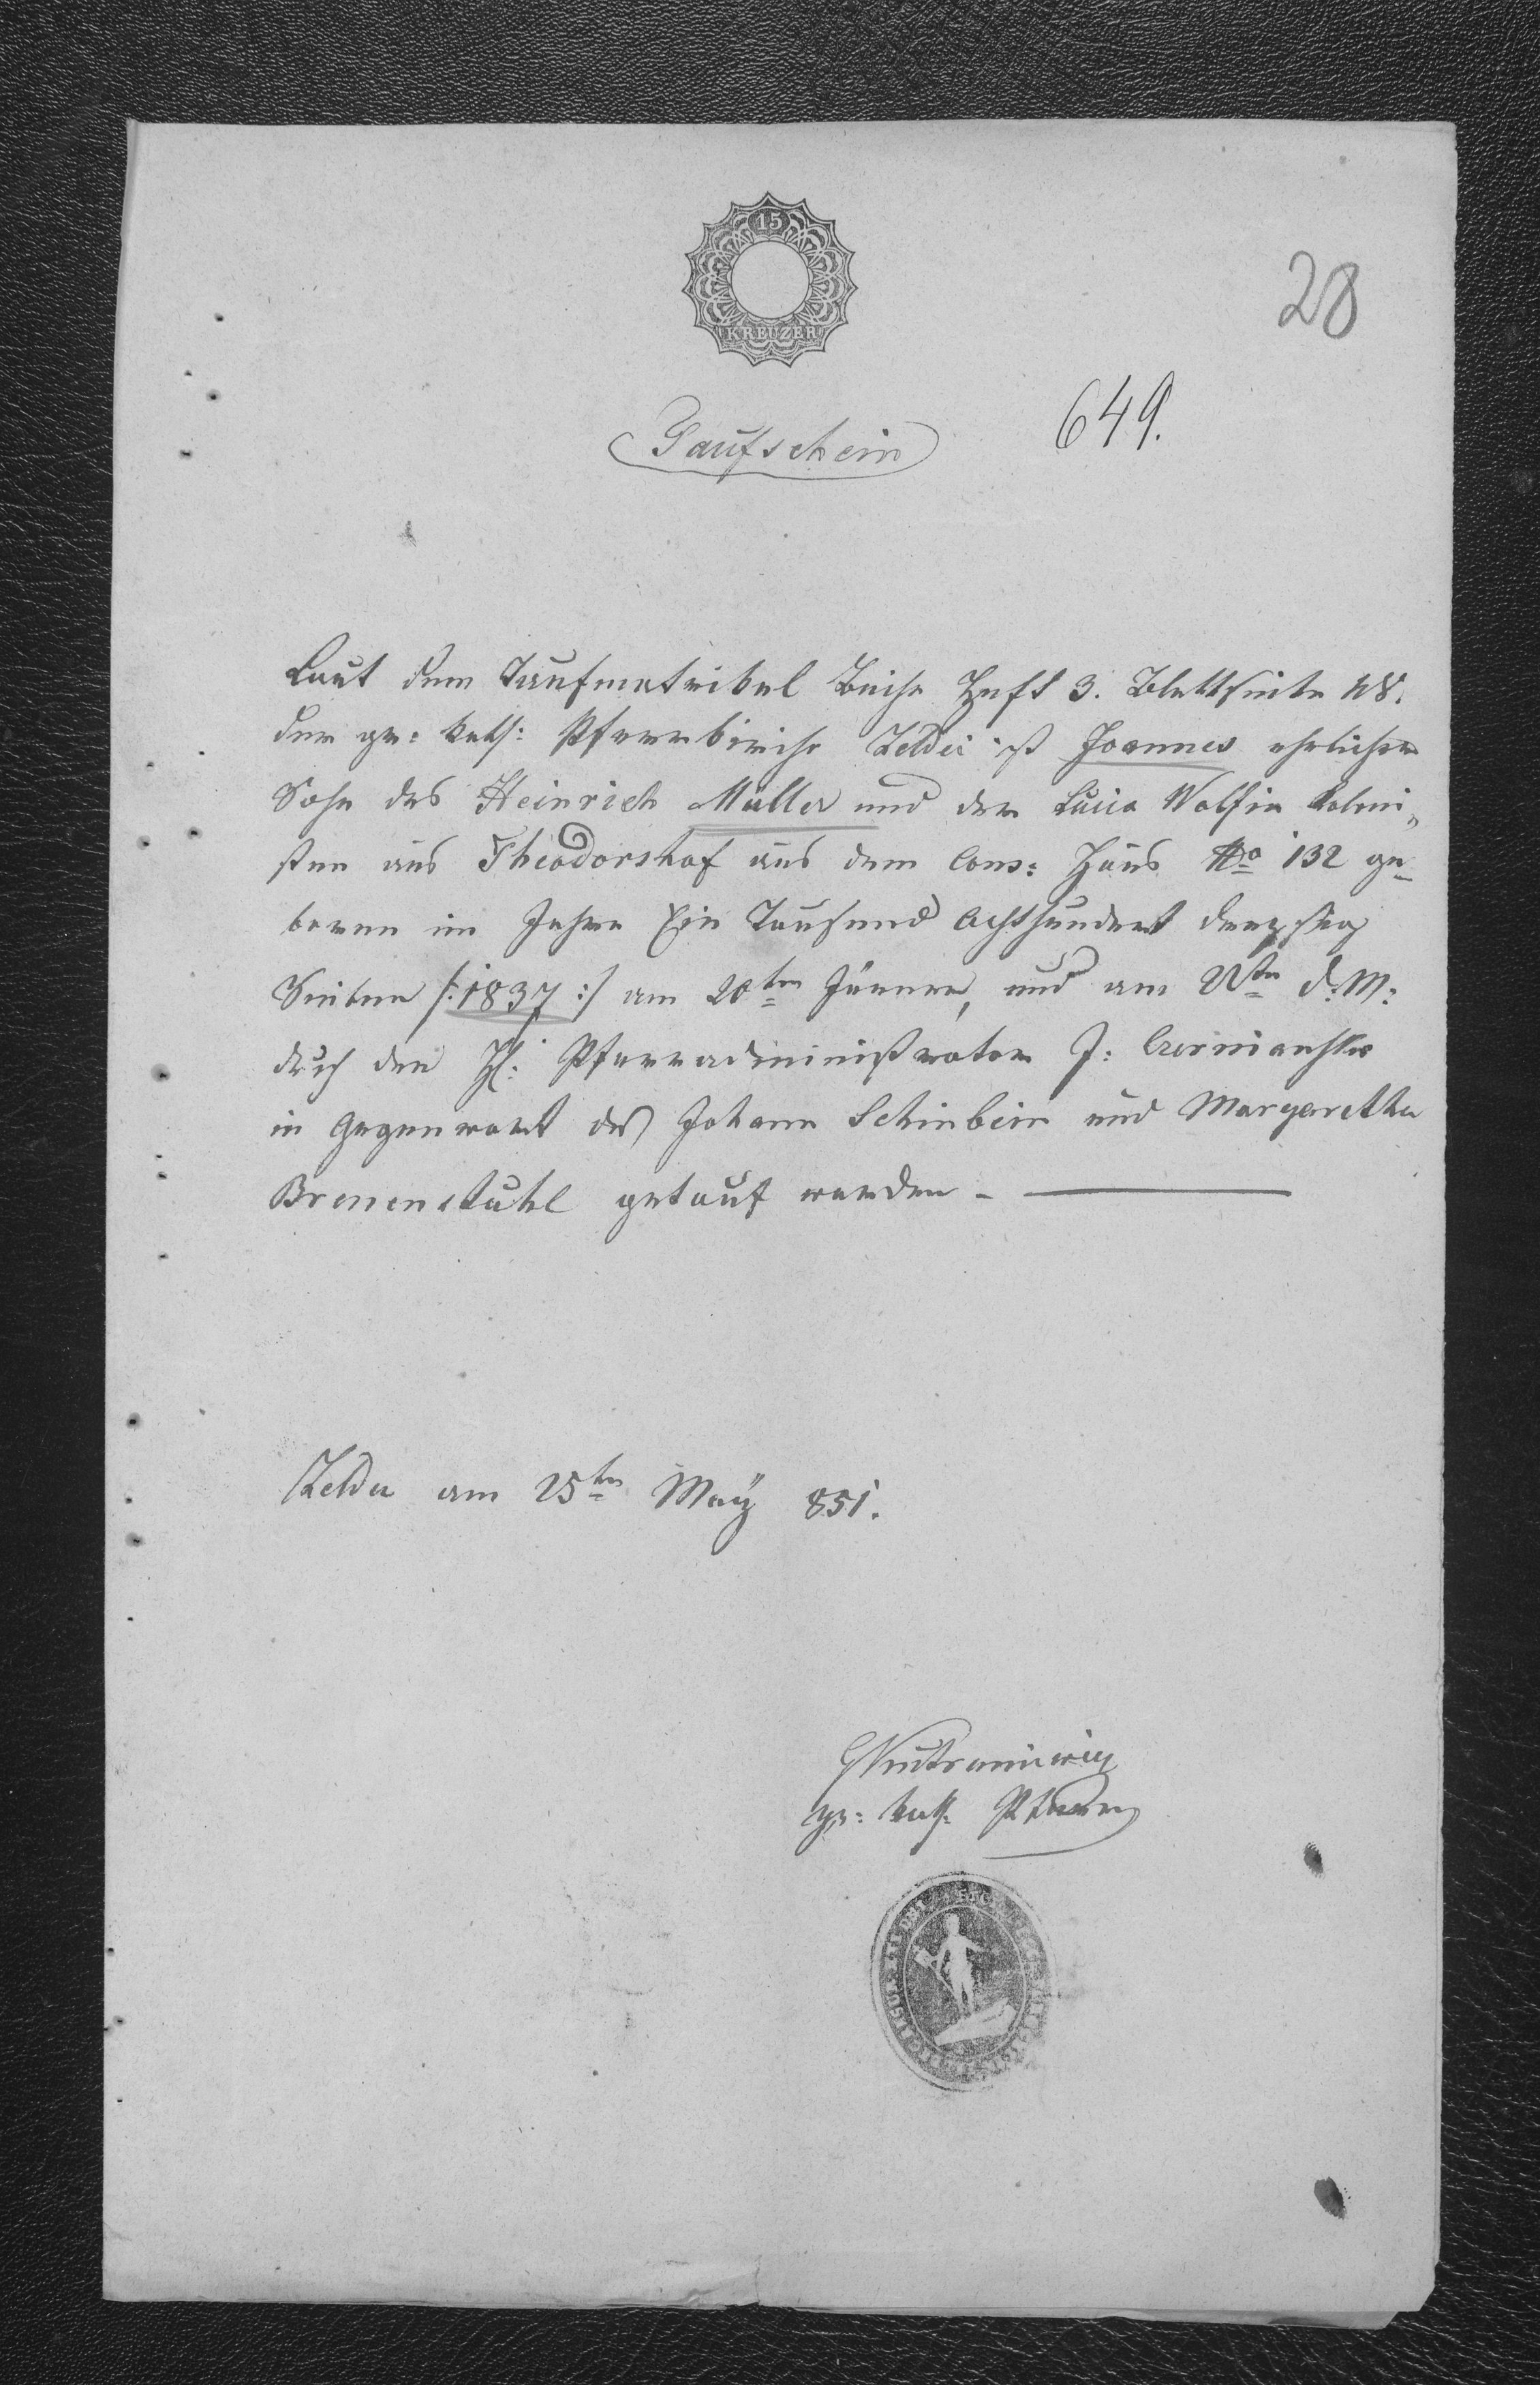 15
KREUZER
28
649.
Taufschein
Laut dem Taufmatrikel Buche Heft 3. Blattseite 48.
der gr: kath: Pfarrkirche Zeldec ist Joannes ehelicher
Sohn des Heinrich Müller und der Lucia Wolfin Koloni„
sten aus Theodorshof aus dem Cons: Haus No 132 ge-
boren im Jahre Ein Tausend Achthundert dreyssig
Sieben /: 1837 :/ am 20ten Jänner, und am ten d: M:
durch den H: Pfarradministrator J:
in Gegenwart des Johann Schinbein und Margaretha
Brenenstuhl getauf worden -
am 25ten May 851.
gr: kath: Pfarrer